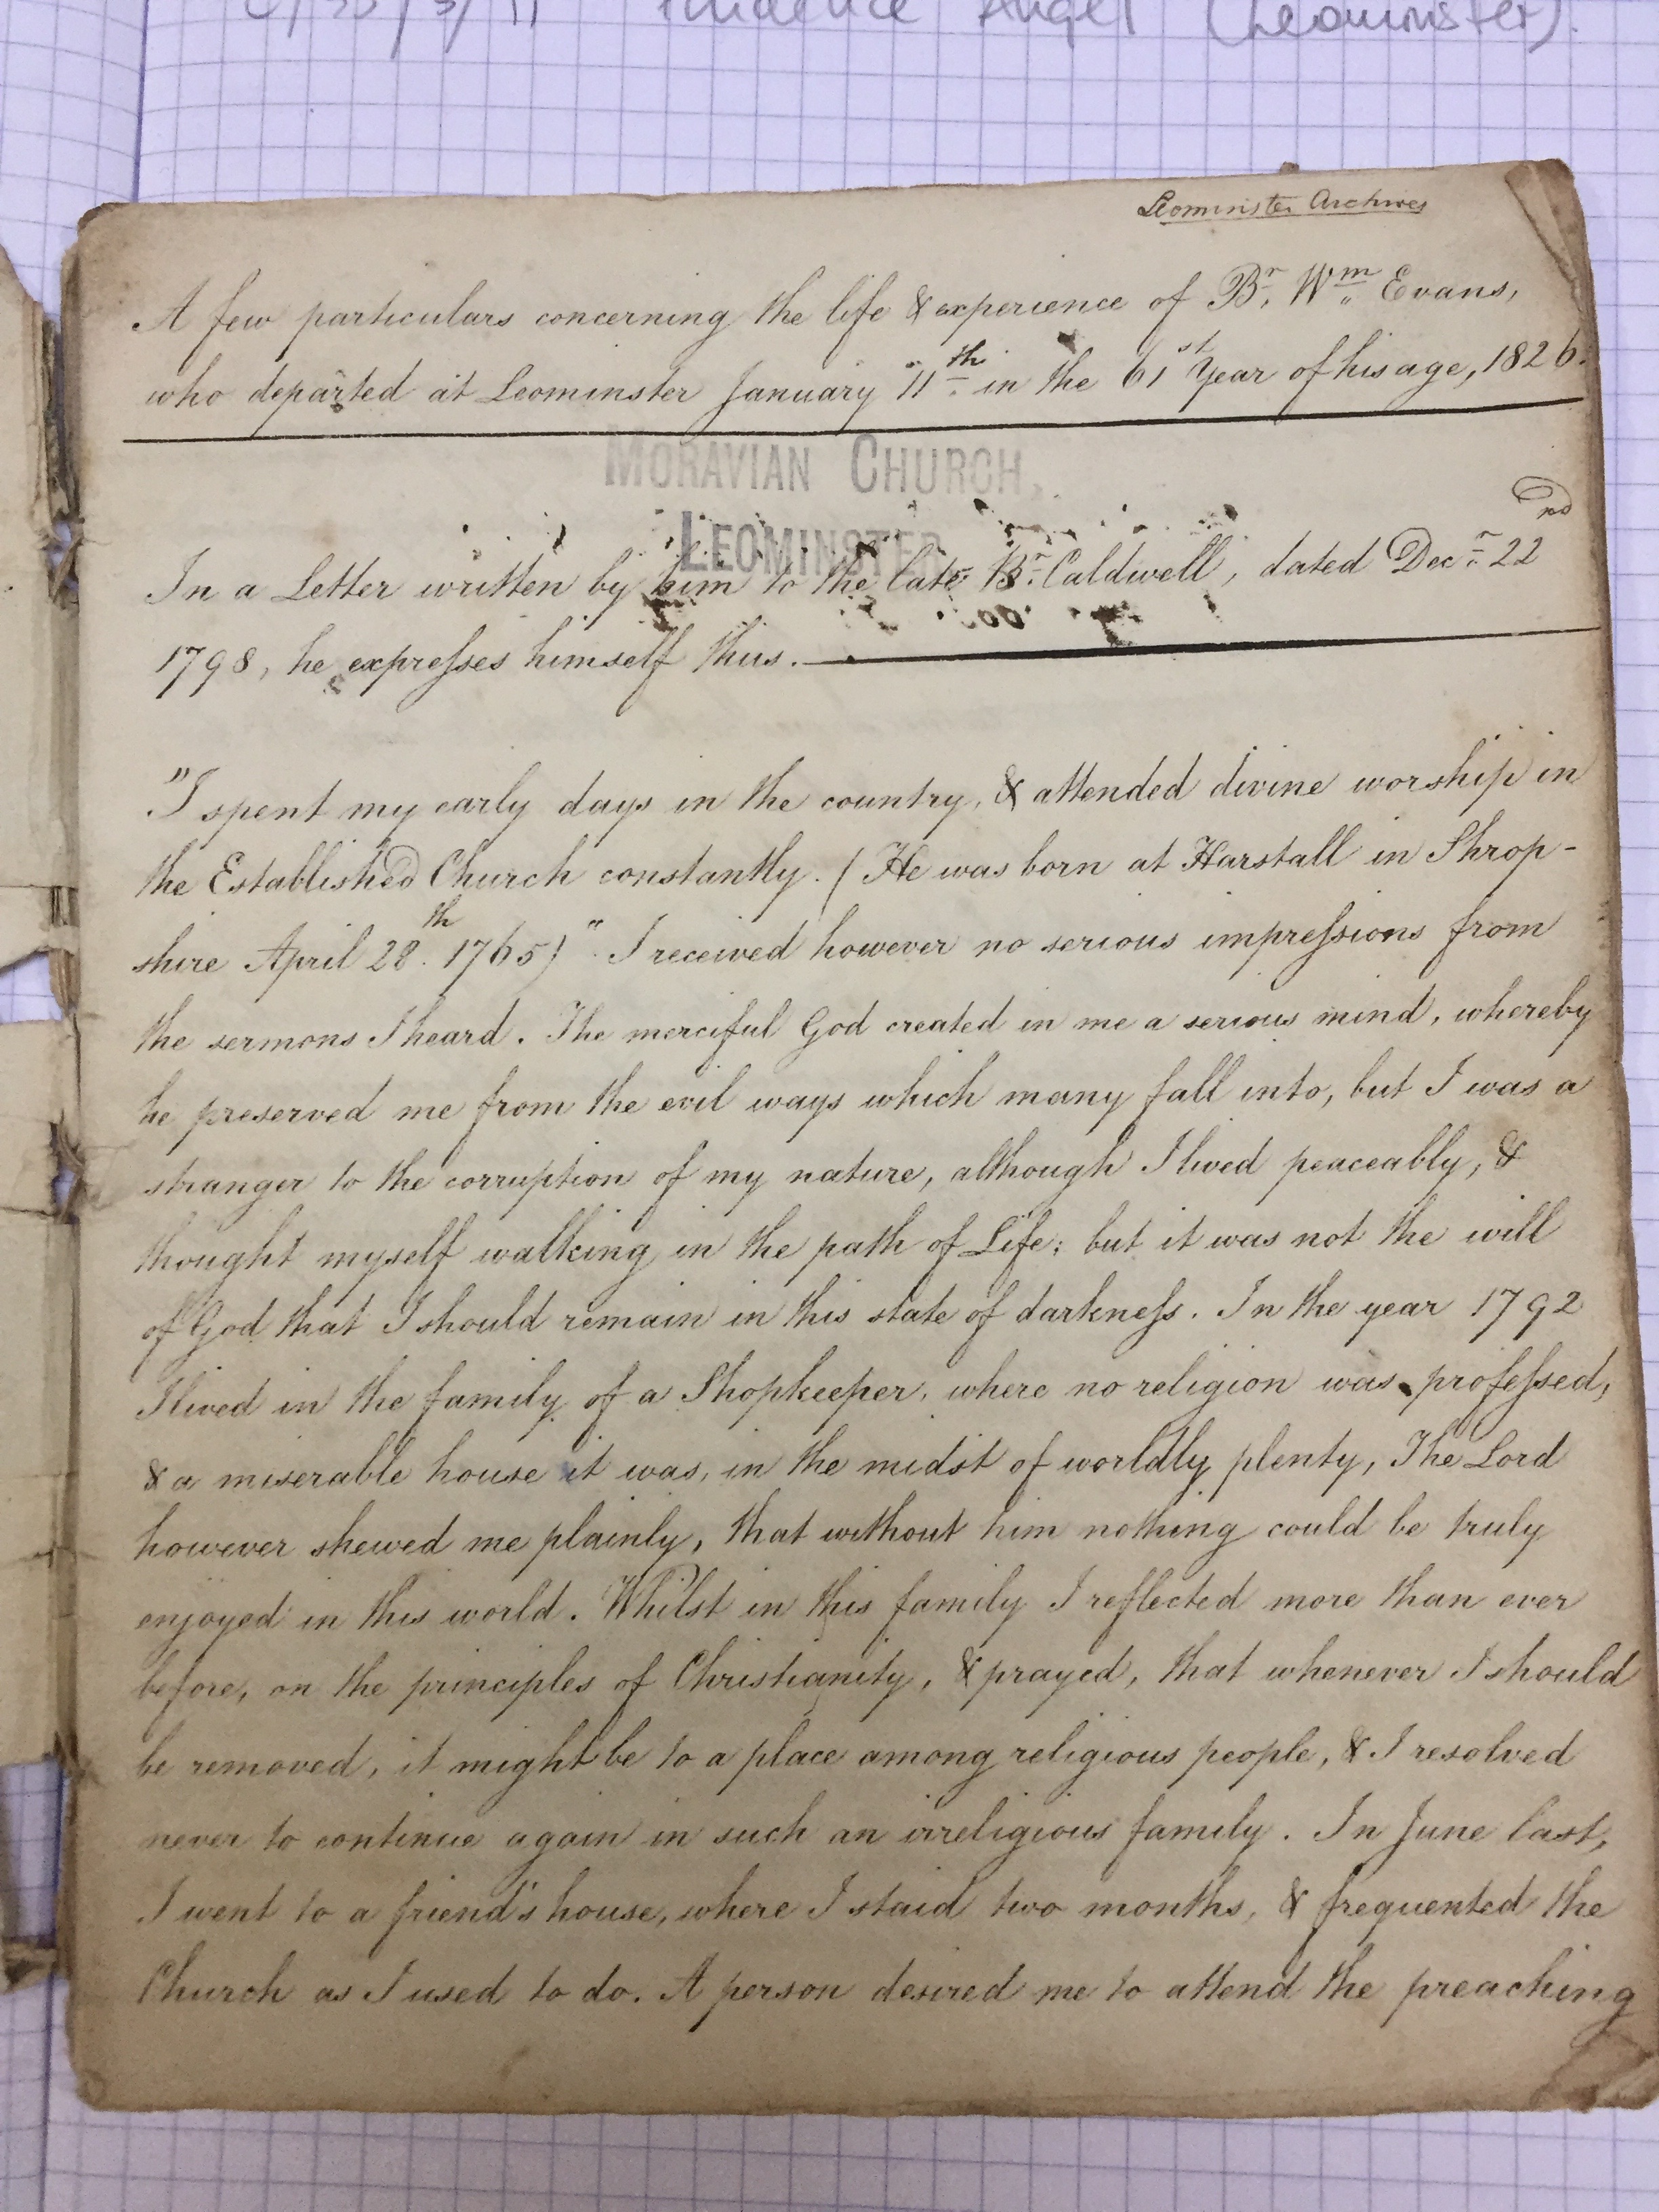 Angel (Leominster).
Leominster Archives
A few particulars concerning the life & experience of Br. Wm. Evans,
who departed at Leominster January 11th in the 61st Year of his age, 1826.
MORAVIAN CHURCH,
LEOMINSTER
In a Letter written by him to the late Br. Caldwell, dated Decr. 22nd
1798, he expresses himself thus.
"I spent my early days in the country, & attended divine worship in
the Established Church constantly. (He was born at Harstall in Shrop-
shire April 28th. 1765)" I received however no serious impressions from
the sermons I heard. The merciful God created in me a serious mind, whereby
he preserved me from the evil ways which many fall into, but I was a
stranger to the corruption of my nature, although I lived peaceably, &
thought myself walking in the path of Life; but it was not the will
of God that I should remain in this state of darkness. In the year 1792
I lived in the family of a Shopkeeper, where no religion was professed,
& a miserable house it was, in the midst of worldly plenty, The Lord
however shewed me plainly, that without him nothing could be truly
enjoyed in this world. Whilst in this family I reflected more than ever
before, on the principles of Christianity, & prayed, that whenever I should
be removed, it might be to a place among religious people, & I resolved
never to continue again in such an irreligious family. In June last,
I went to a friend's house, where I staid two months, & frequented the
Church as I used to do. A person desired me to attend the preaching